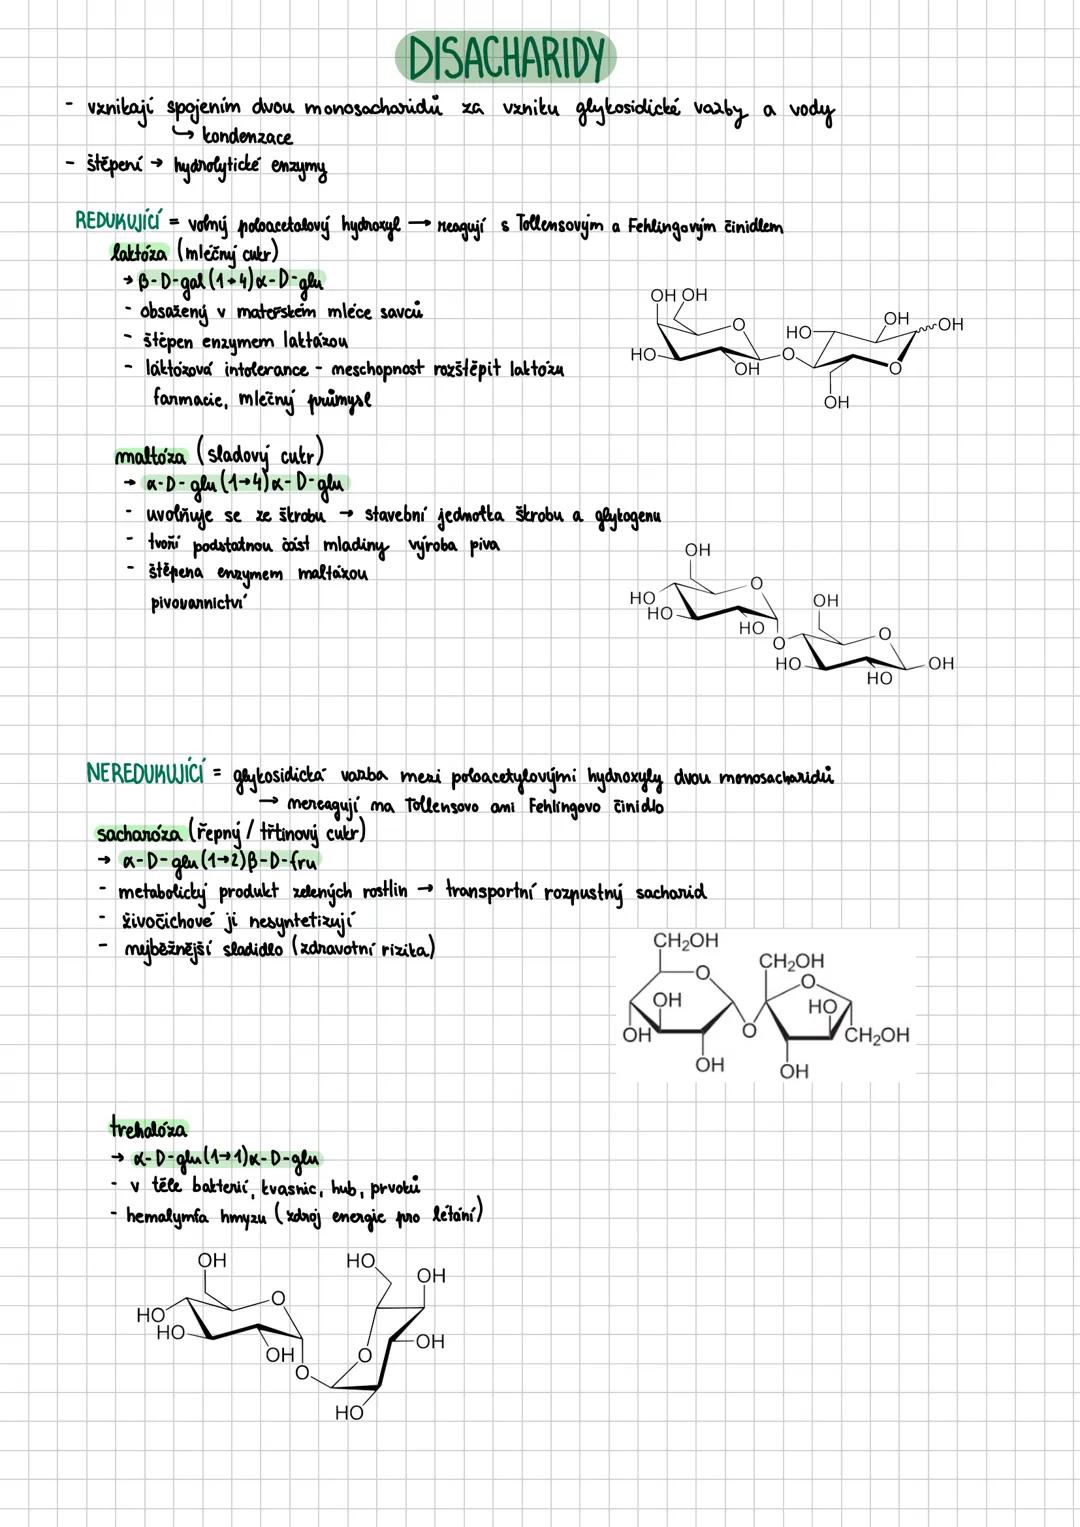 DISACHARIDY
- vznikají spojením dvou monosacharidů za vzniku glykosidické vazby a vody
↳ kondenzace
- štěpení → hydrolytické enzymy
REDUKUJÍCÍ = volný poloacetalový hydroxyl → reagují s Tollensovým a Fehlingovým činidlem
laktóza (mléčný cukr)
→ β-D-gal(1→4)α-D-glu
- obsažený v mateřském mléce savců
- štěpen enzymem laktázou
- laktózová intolerance - neschopnost rozštěpit laktózu
farmacie, mléčný průmysl
OH OH
O
HO
OH
O
HO
OH
OH
O
OH
maltóza (sladový cukr)
→ α-D-glu(1→4)α-D-glu
- uvolňuje se ze škrobu → stavební jednotka škrobu a glykogenu
- tvoří podstatnou část mladiny výroba piva
- štěpena enzymem maltázou
pivovarnictví
OH
O
HO
HO
HO
O
OH
O
HO
HO
OH
NEREDUKUJÍCÍ = glykosidická vazba mezi poloacetylovými hydroxyly dvou monosacharidů
→ nereagují na Tollensovo ani Fehlingovo činidlo
sacharóza (řepný / třtinový cukr)
→ α-D-glu(1→2)β-D-fru
- metabolický produkt zelených rostlin → transportní rozpustný sacharid
- živočichové ji nesyntetizují
- nejběžnější sladidlo (zdravotní rizika)
CH₂OH
O
OH
OH
OH
O
CH₂OH
O
HO
CH₂OH
OH
trehalóza
→ α-D-glu(1→1)α-D-glu
- v těle bakterií, kvasnic, hub, prvoků
- hemalymfa hmyzu (zdroj energie pro létání)
OH
O
HO
HO
OH
O
HO
OH
OH
O
HO